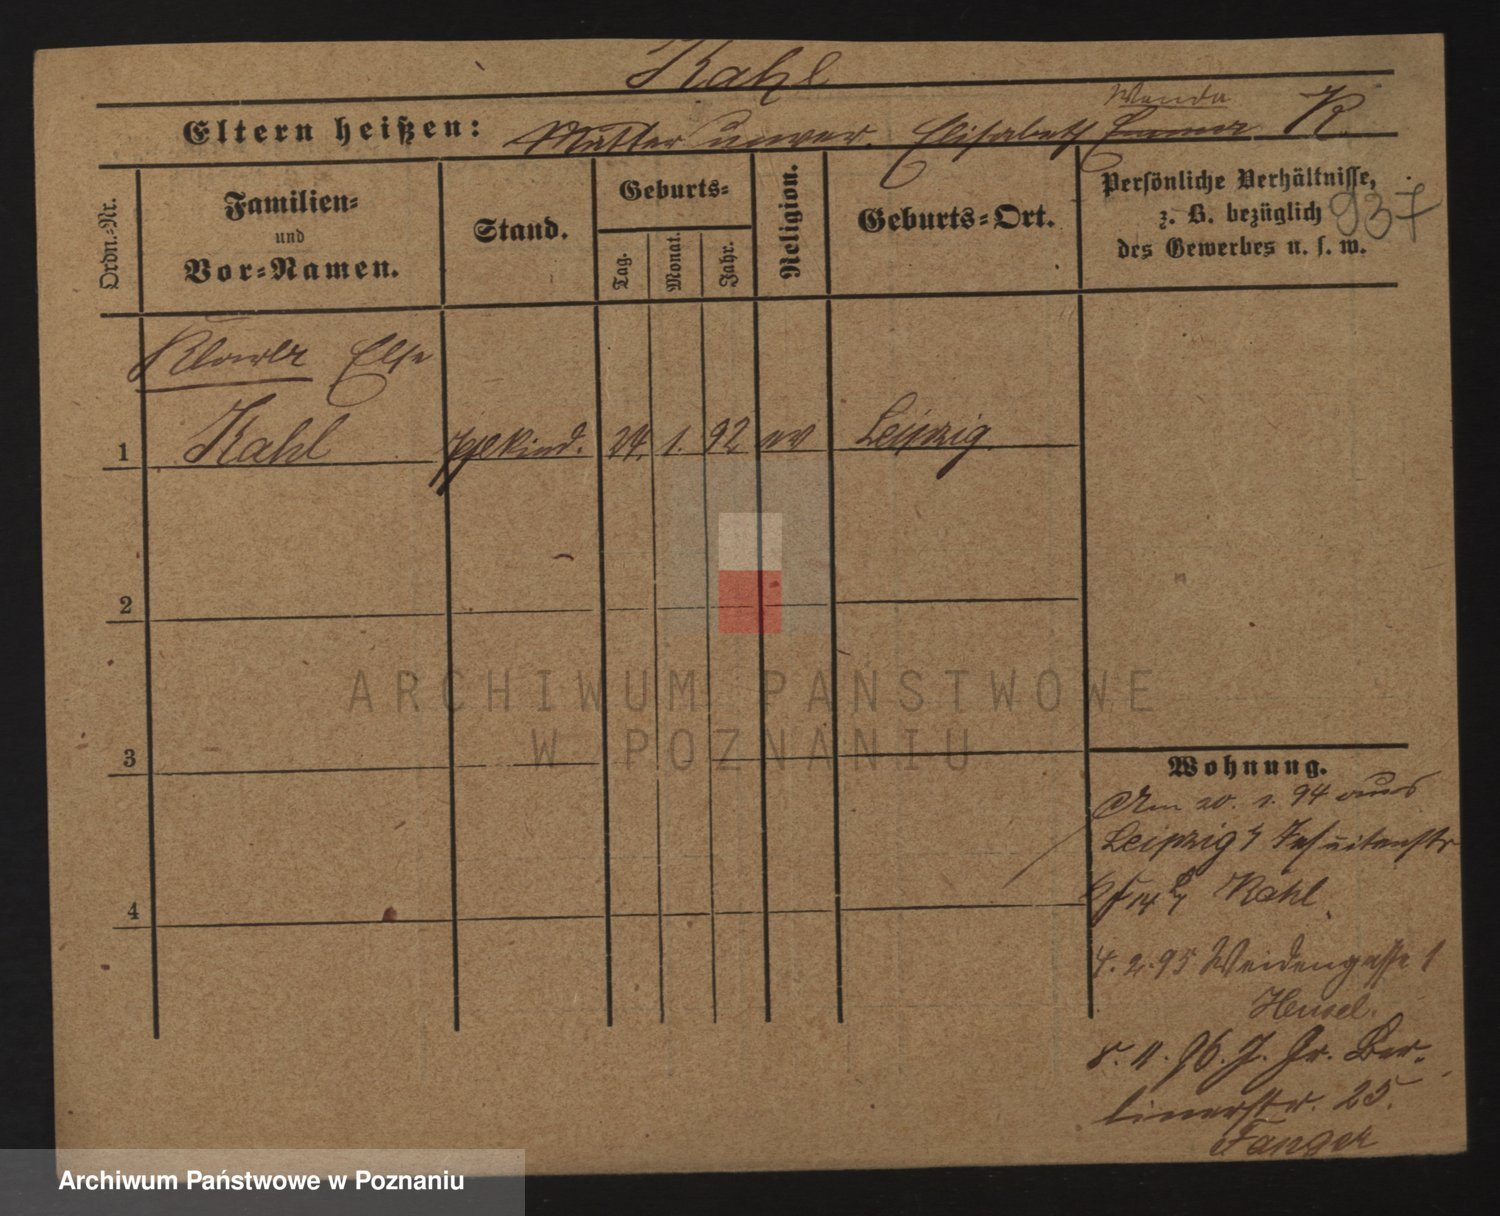 Kahl
Wanda
Eltern heißen: Mutter unver. Elisabeth Emma K.
Ordn.-Nr.
Familien-
und
Vor-Namen.
Stand.
Geburts-
Tag.
Monat.
Jahr.
Religion.
Geburts-Ort.
Persönliche Verhältnisse,
z. B. bezüglich
des Gewerbes u. s. w.
937
Klara Else
1 Kahl Pflgkind. 24. 1. 92 ev Leipzig.
2
3
4
Wohnung.
Am 20. 1. 94 aus
Leipzig Jesuitenstr
Kahl
4. 2. 95 Weidengasse 1
Hensel.
8. 11. 96. J. Gr. Ber-
linerstr. 25.
Fanger
ARCHIWUM PAŃSTWOWE
W POZNANIU
Archiwum Państwowe w Poznaniu